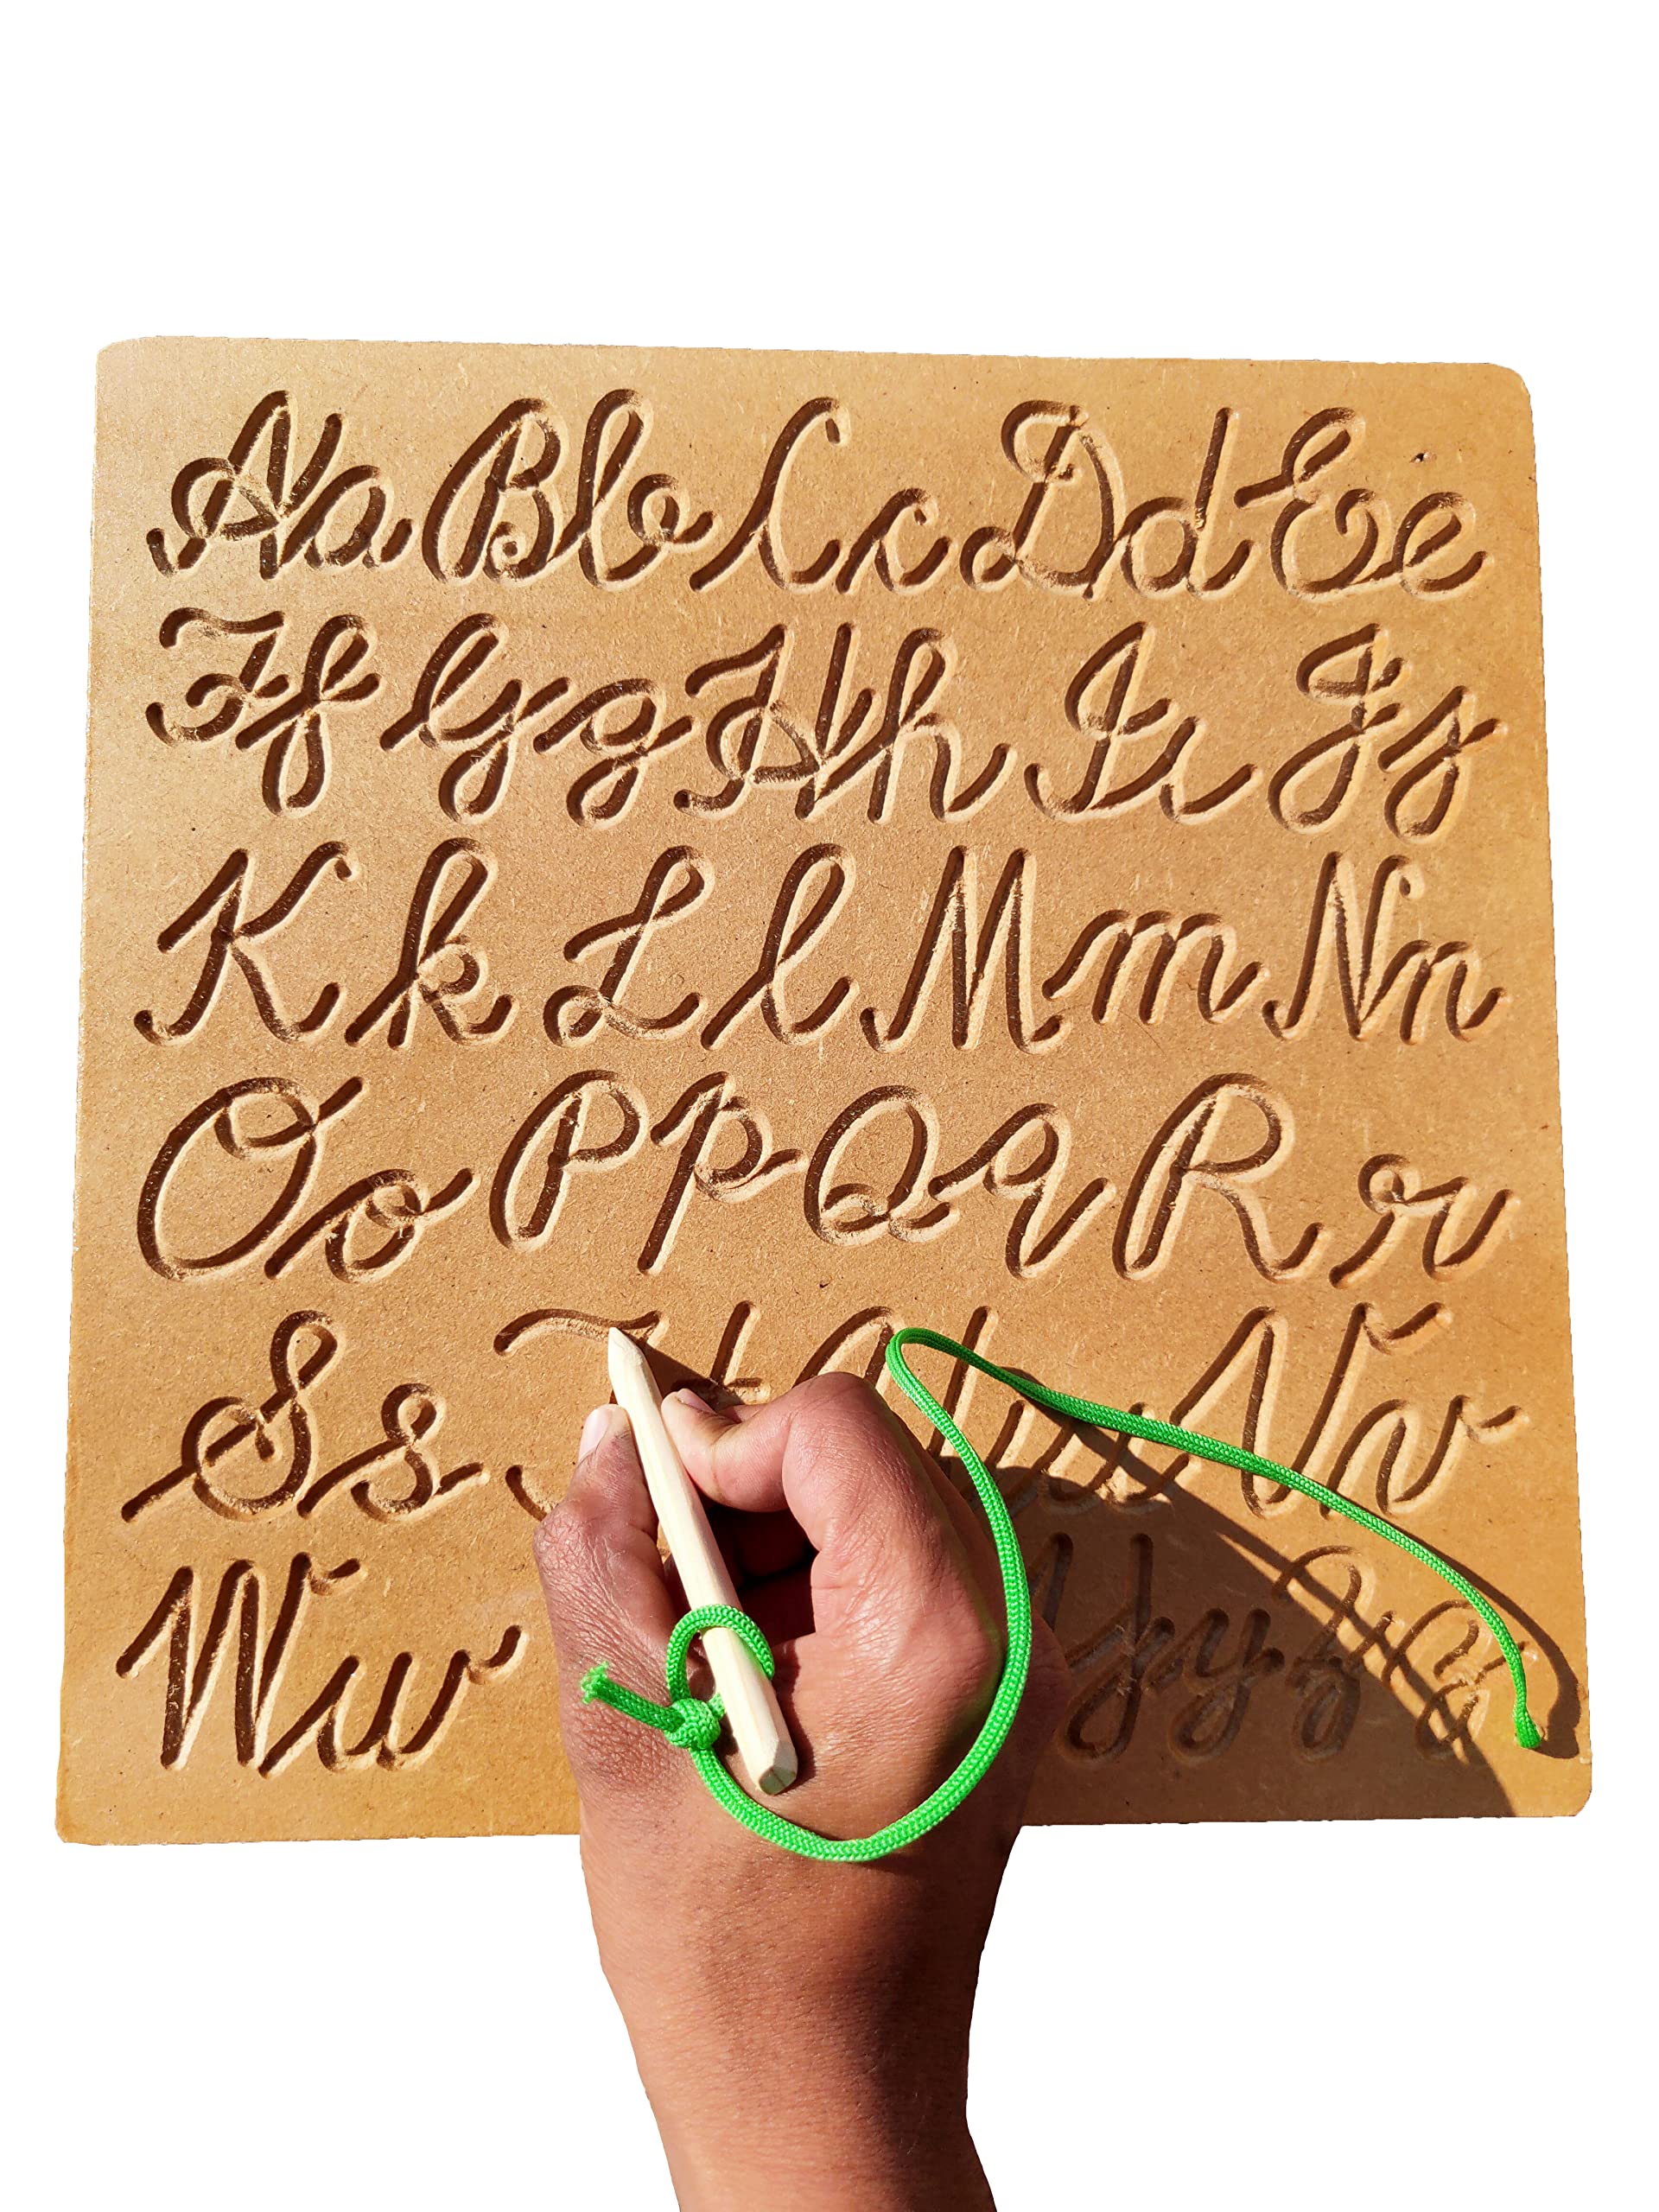 Aa Bb Cc Dd Ee
Ff Gg Hh Ii Jj
Kk Ll Mm Nn
Oo Pp Qq Rr
Ss Tt Uu Vv
Ww Yy Zz